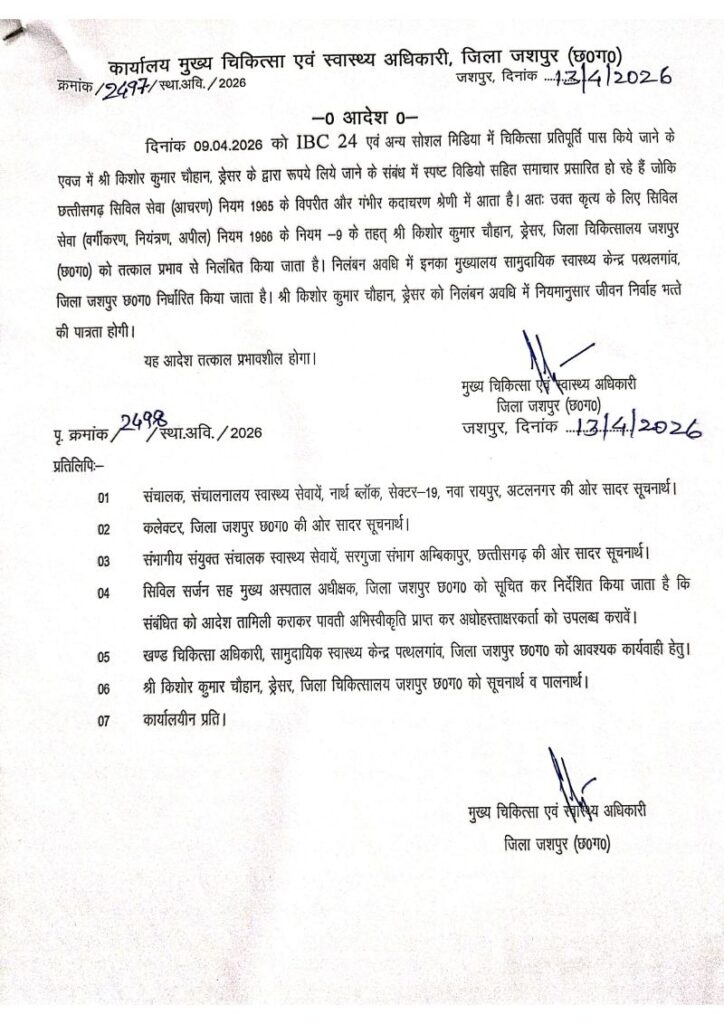 कार्यालय मुख्य चिकित्सा एवं स्वास्थ्य अधिकारी, जिला जशपुर (छ0ग0)
क्रमांक/2497/स्था.अवि./2026 जशपुर, दिनांक ....13/4/2026
—0 आदेश 0—
दिनांक 09.04.2026 को IBC 24 एवं अन्य सोशल मिडिया में चिकित्सा प्रतिपूर्ति पास किये जाने के
एवज में श्री किशोर कुमार चौहान, ड्रेसर के द्वारा रूपये लिये जाने के संबंध में स्पष्ट विडियो सहित समाचार प्रसारित हो रहे हैं जोकि
छत्तीसगढ़ सिविल सेवा (आचरण) नियम 1965 के विपरीत और गंभीर कदाचरण श्रेणी में आता है। अतः उक्त कृत्य के लिए सिविल
सेवा (वर्गीकरण, नियंत्रण, अपील) नियम 1966 के नियम –9 के तहत् श्री किशोर कुमार चौहान, ड्रेसर, जिला चिकित्सालय जशपुर
(छ0ग0) को तत्काल प्रभाव से निलंबित किया जाता है। निलंबन अवधि में इनका मुख्यालय सामुदायिक स्वास्थ्य केन्द्र पत्थलगांव,
जिला जशपुर छ0ग0 निर्धारित किया जाता है। श्री किशोर कुमार चौहान, ड्रेसर को निलंबन अवधि में नियमानुसार जीवन निर्वाह भत्ते
की पात्रता होगी।
यह आदेश तत्काल प्रभावशील होगा।
मुख्य चिकित्सा एवं स्वास्थ्य अधिकारी
जिला जशपुर (छ0ग0)
पृ. क्रमांक/2498/स्था.अवि./2026 जशपुर, दिनांक ....13/4/2026
प्रतिलिपिः–
01 संचालक, संचालनालय स्वास्थ्य सेवायें, नार्थ ब्लॉक, सेक्टर–19, नवा रायपुर, अटलनगर की ओर सादर सूचनार्थ।
02 कलेक्टर, जिला जशपुर छ0ग0 की ओर सादर सूचनार्थ।
03 संभागीय संयुक्त संचालक स्वास्थ्य सेवायें, सरगुजा संभाग अम्बिकापुर, छत्तीसगढ़ की ओर सादर सूचनार्थ।
04 सिविल सर्जन सह मुख्य अस्पताल अधीक्षक, जिला जशपुर छ0ग0 को सूचित कर निर्देशित किया जाता है कि
संबंधित को आदेश तामिली कराकर पावती अभिस्वीकृति प्राप्त कर अधोहस्ताक्षरकर्ता को उपलब्ध करावें।
05 खण्ड चिकित्सा अधिकारी, सामुदायिक स्वास्थ्य केन्द्र पत्थलगांव, जिला जशपुर छ0ग0 को आवश्यक कार्यवाही हेतु।
06 श्री किशोर कुमार चौहान, ड्रेसर, जिला चिकित्सालय जशपुर छ0ग0 को सूचनार्थ व पालनार्थ।
07 कार्यालयीन प्रति।
मुख्य चिकित्सा एवं स्वास्थ्य अधिकारी
जिला जशपुर (छ0ग0)